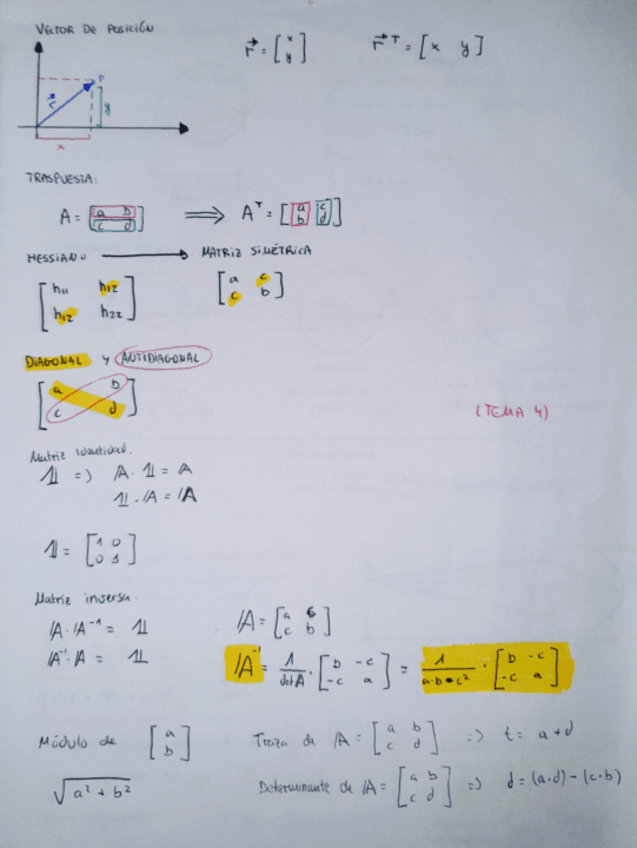 VECTOR DE POSICIÓN
r⃗ = [x y]
r⃗ᵀ = [x y]
P
r⃗
y
x
TRASPUESTA:
A = [a b c d] ⟹ Aᵀ = [a c b d]
HESSIANO ⟶ MATRIZ SIMÉTRICA
[h11 h12 h12 h22]
[a c c b]
DIAGONAL y ANTIDIAGONAL
[a b c d]
(TEMA 4)
Matriz identidad.
𝟙 => A · 𝟙 = A
𝟙 · A = A
𝟙 = [1 0 0 1]
Matriz inversa.
A · A⁻¹ = 𝟙
A⁻¹ · A = 𝟙
A = [a c b]
A⁻¹ = 1/det A · [b -c -c a] = 1/(a·b - c²) · [b -c -c a]
Módulo de [a b]
√(a² + b²)
Traza de A = [a b c d] => t = a + d
Determinante de A = [a b c d] => d = (a·d) - (c·b)